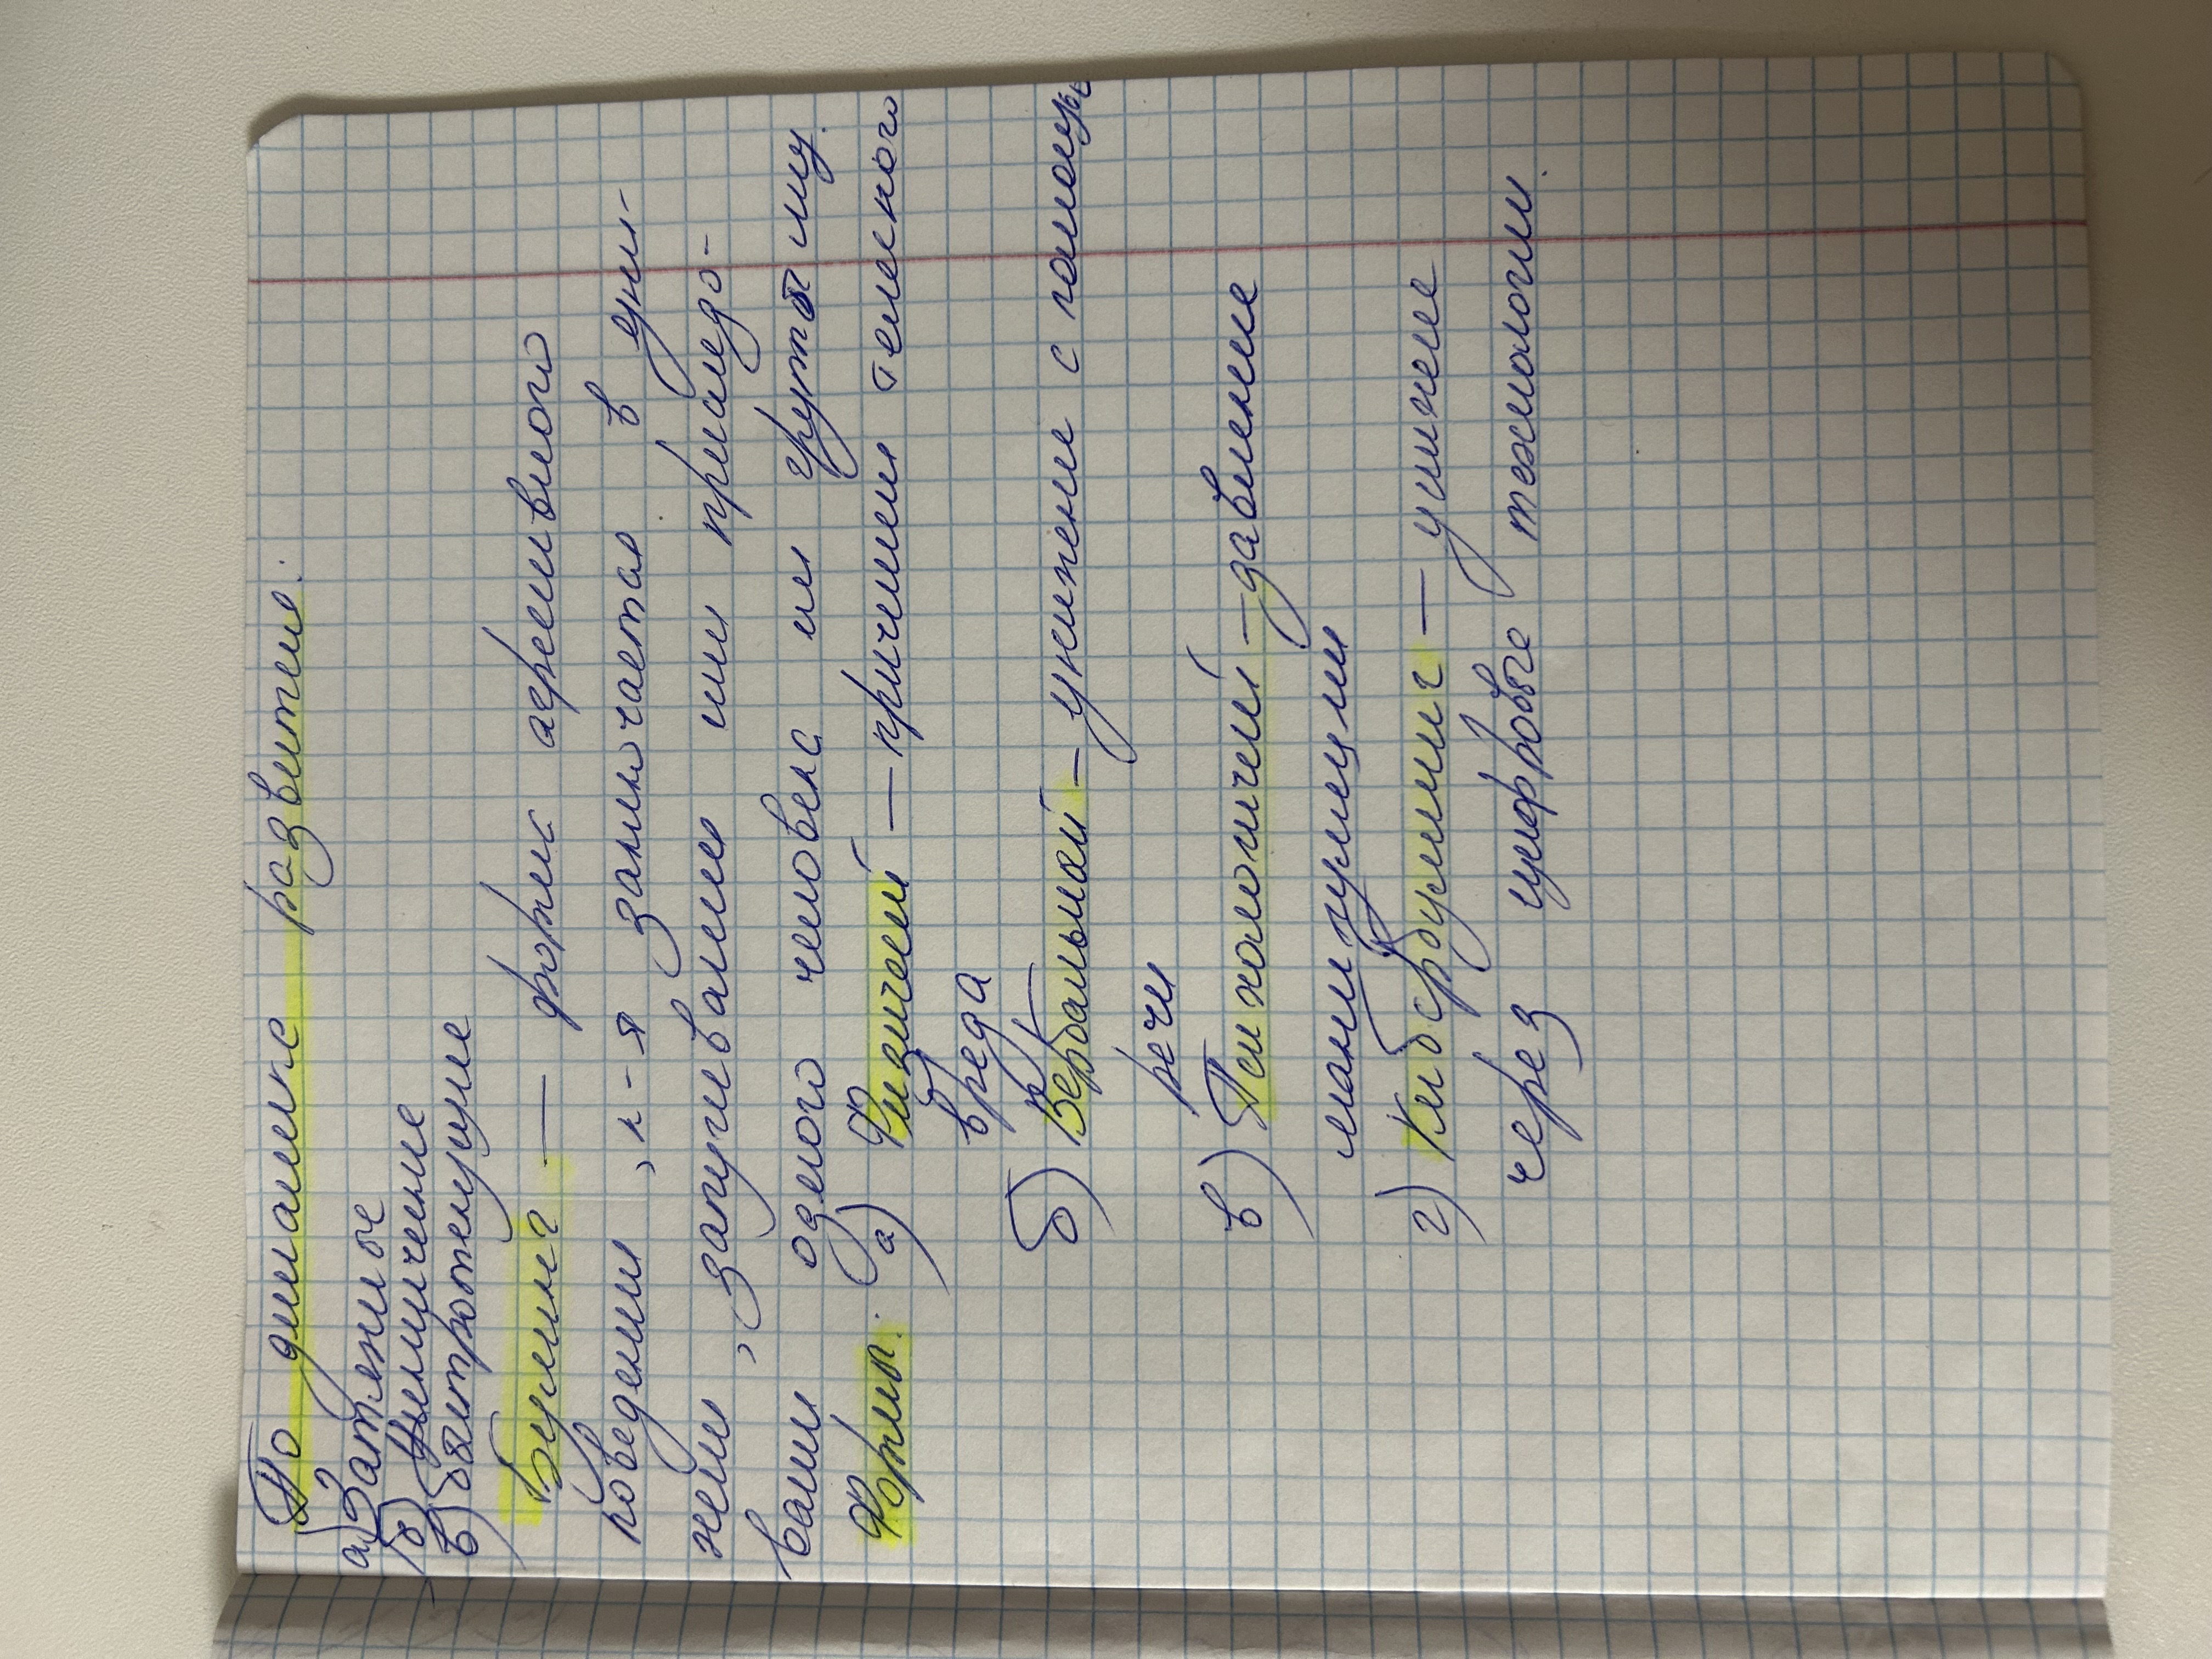 По динамике развития:
а) Затяжное
б) Цикличение
в) быстротекущие
Буллинг — форма агрессивного
поведения, к-я заключается в уни-
жении, запугивание или преследо-
вании одного человека или группы лиц.
Формы: а) Физический — причинении телесного
вреда
б) Вербальный — унижение с помощью
речи
в) Психологичений — давление
манипуляции
г) Кибербуллинг — унижение
через цифровые технологии.